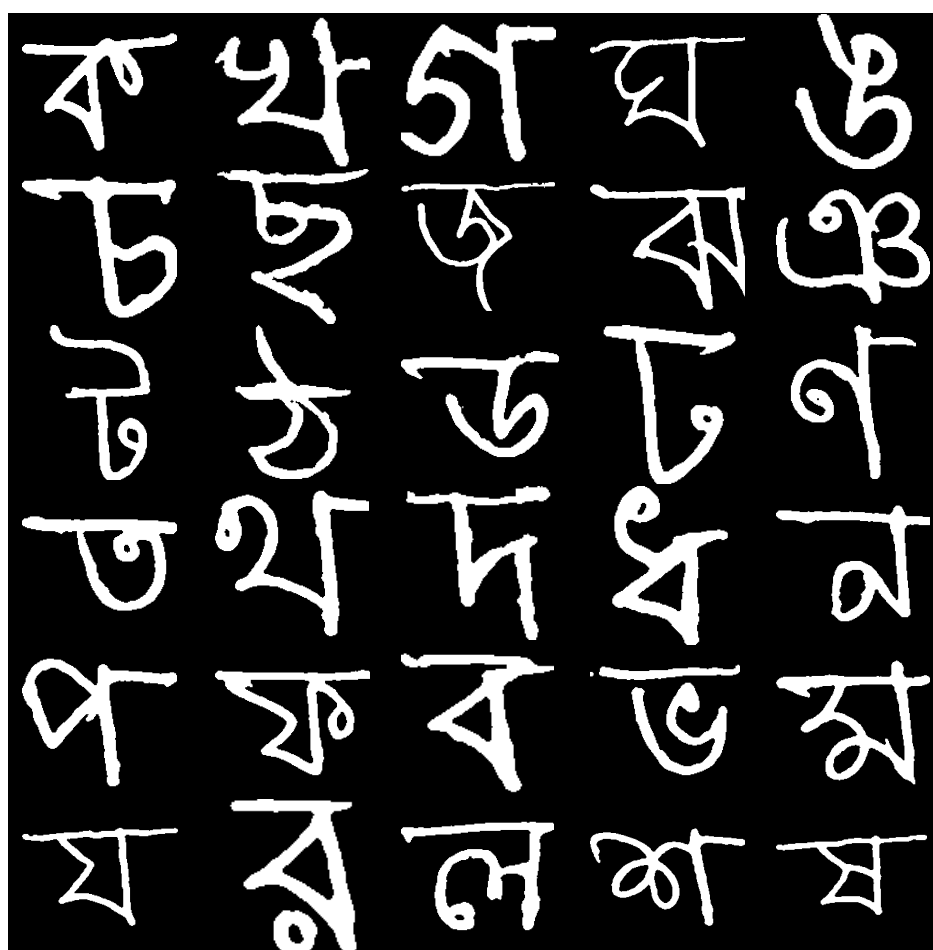 ক খ গ ঘ ঙ
চ ছ জ ঝ ঞ
ট ঠ ড ঢ ণ
ত থ দ ধ ন
প ফ ব ভ ম
য র ল শ ষ